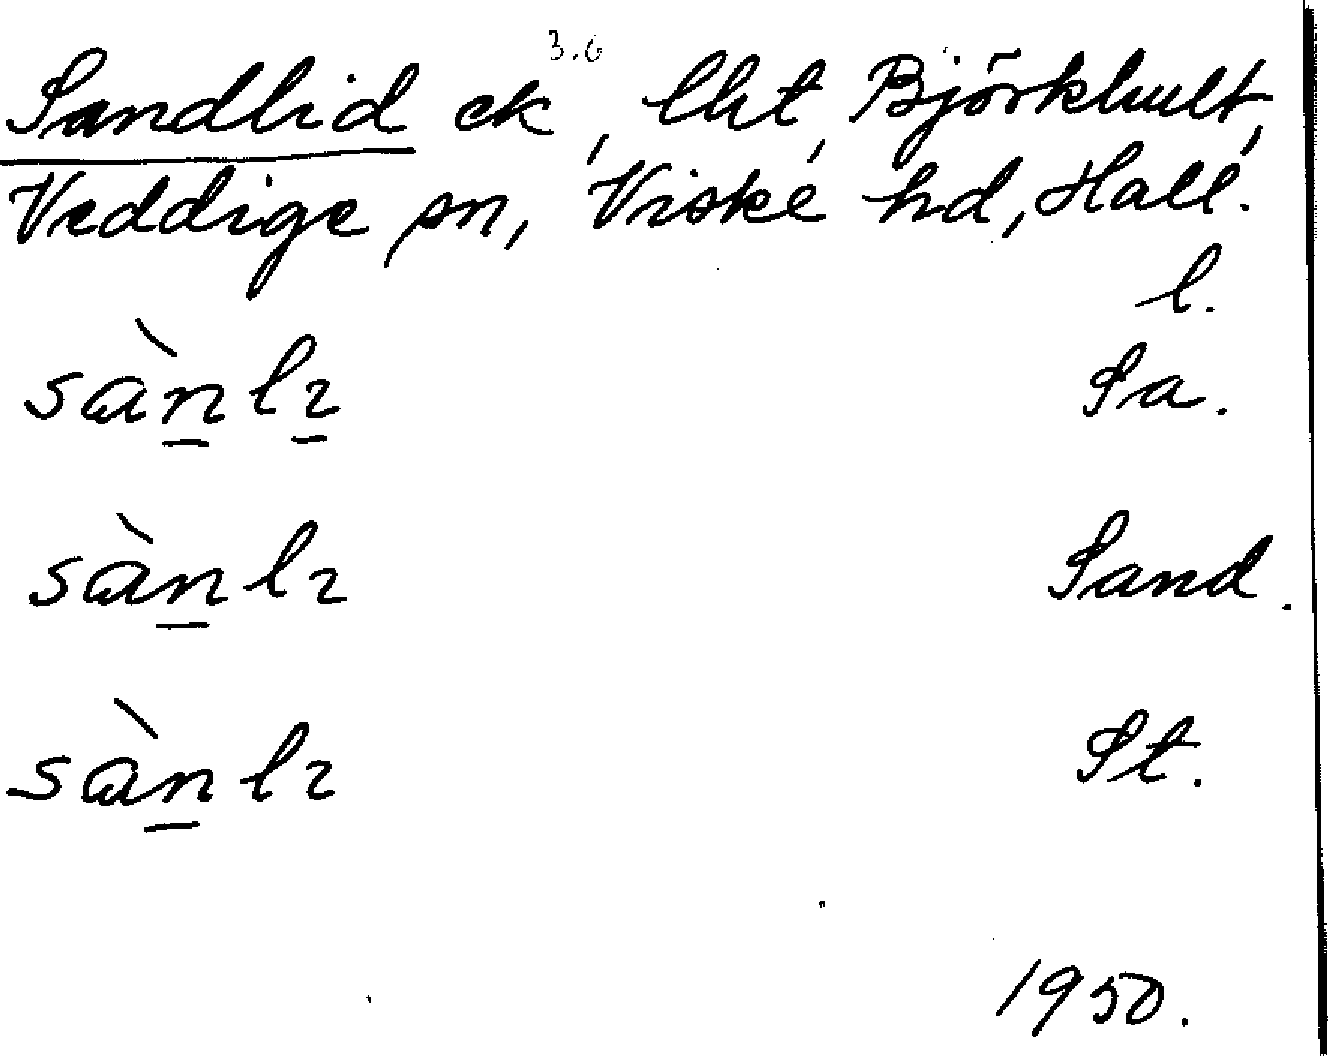 3.6
Sandlid ek, lht, Björkhult,
Veddige sn, Viske hd, Hall.
l.
sàn̲lɪ̲ Sa.
sàn̲lɪ Sand.
sàn̲lɪ St.
1950.